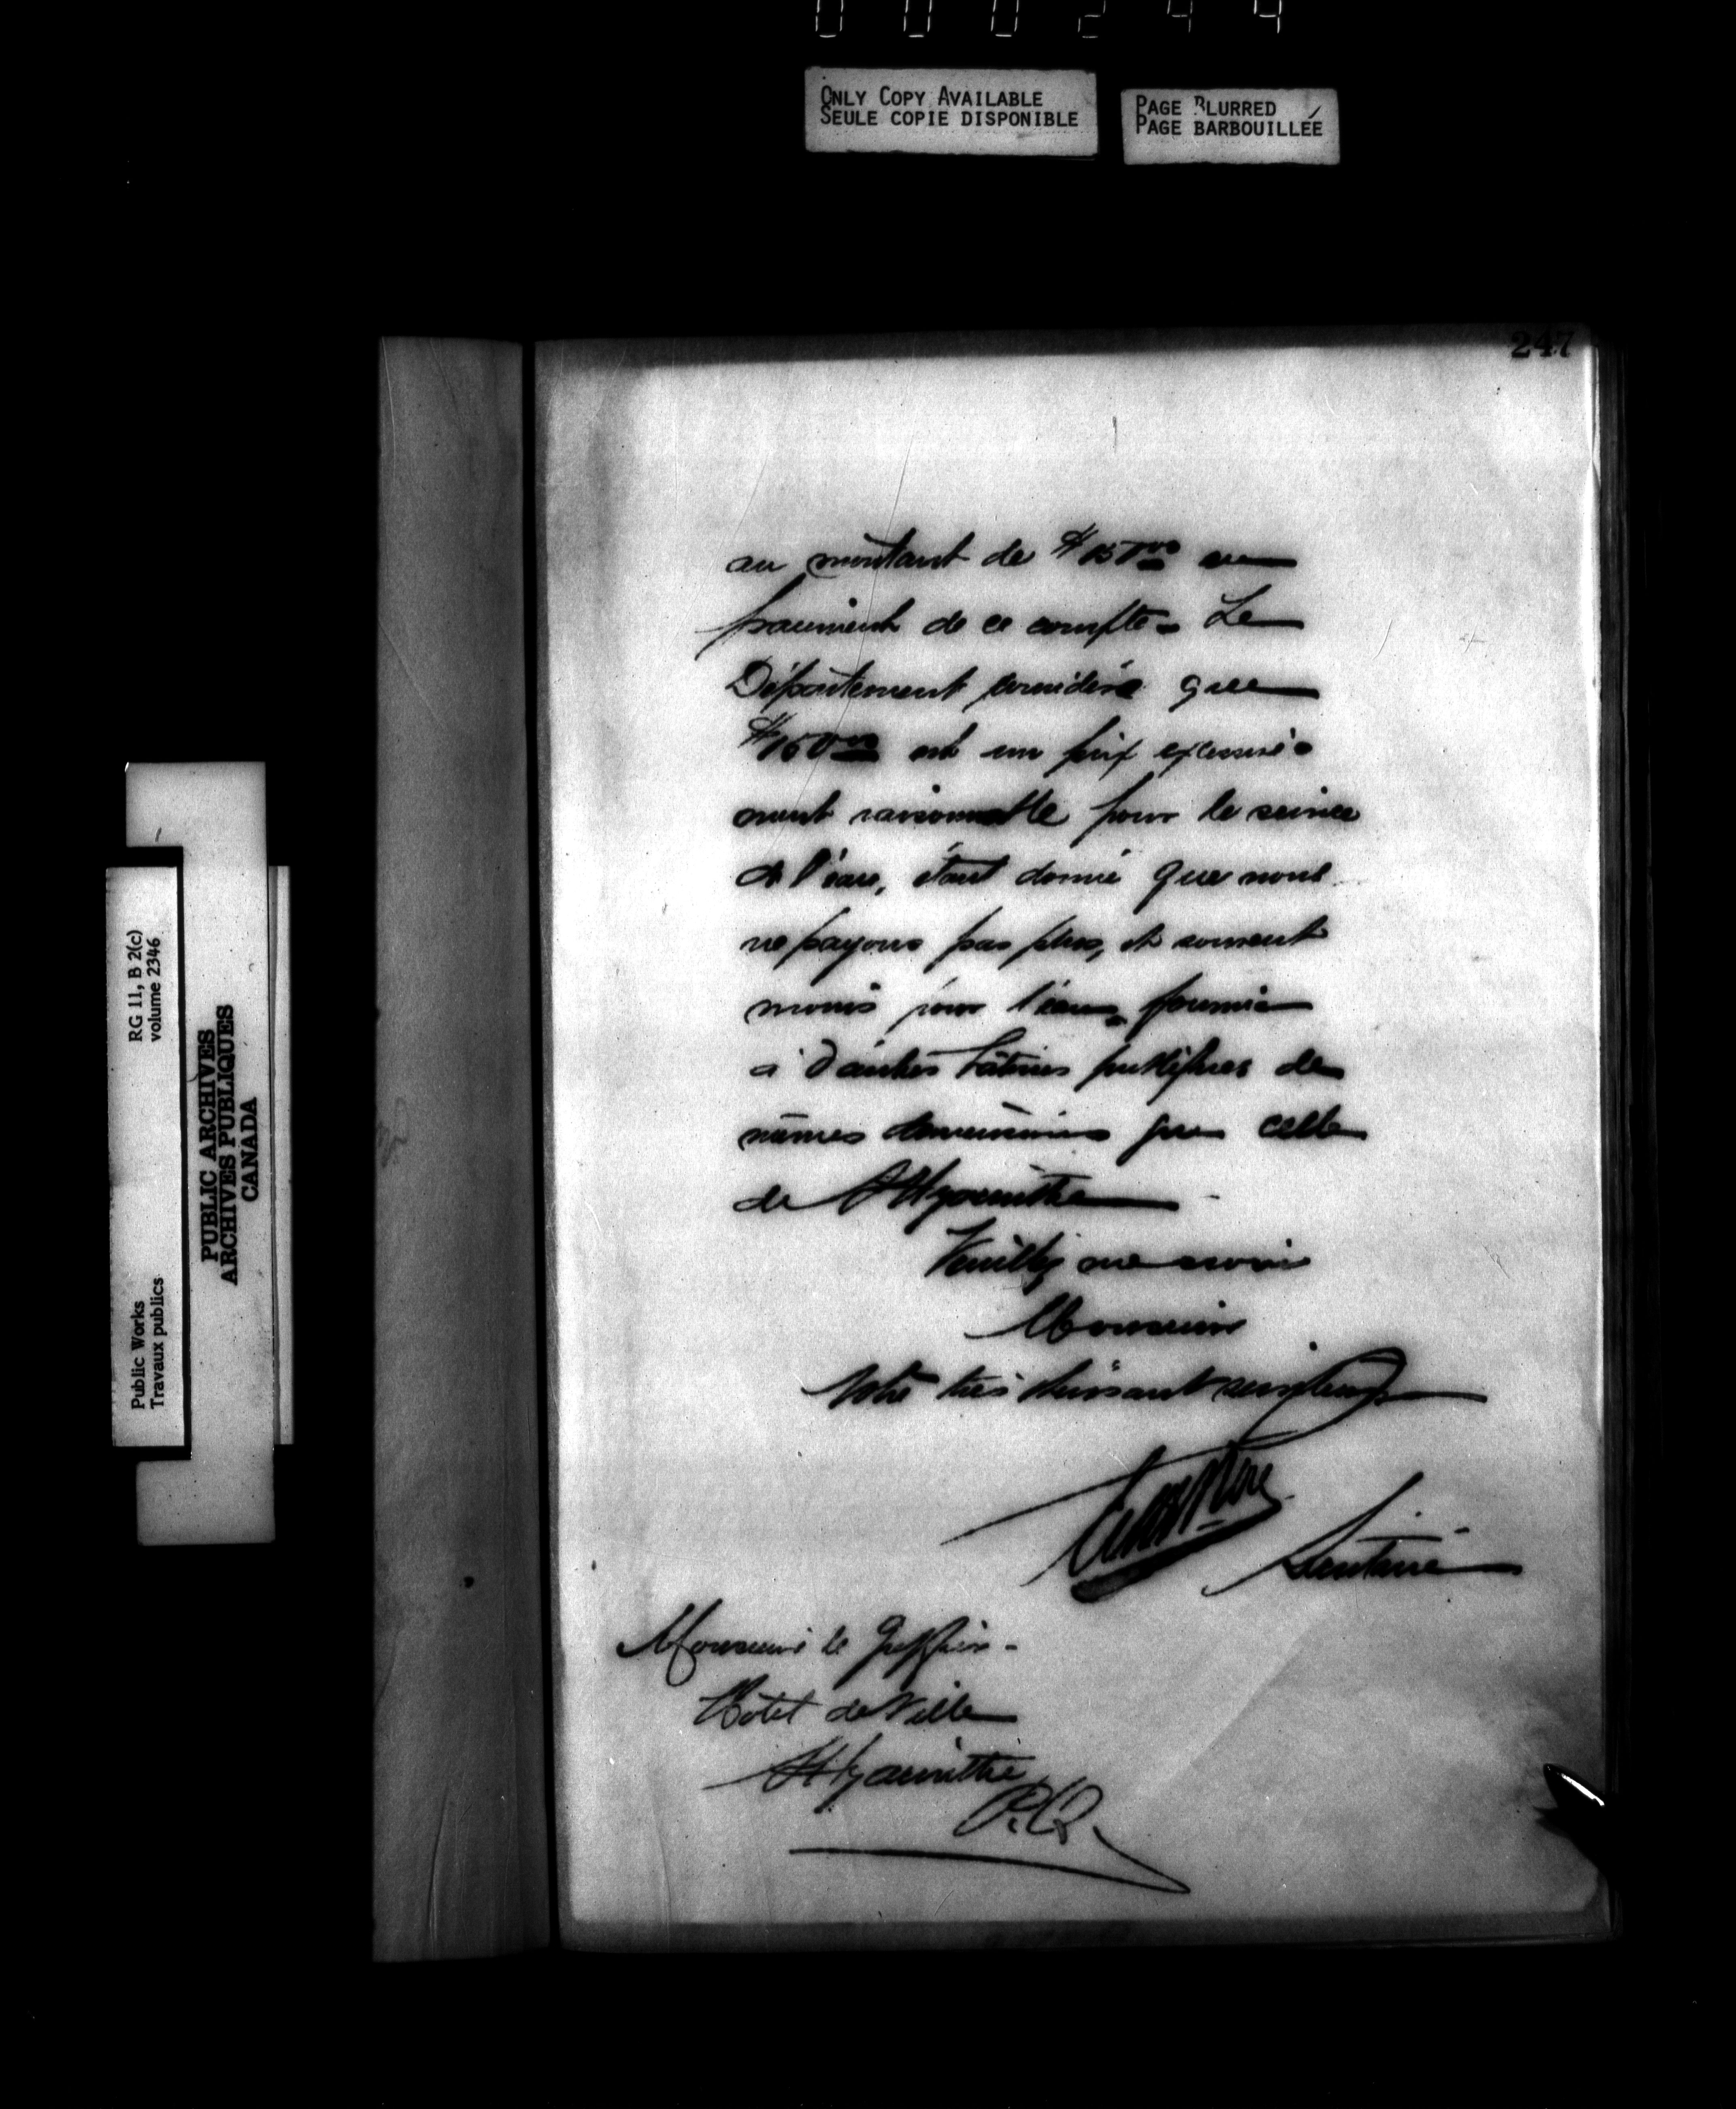 000244
ONLY COPY AVAILABLE
SEULE COPIE DISPONIBLE
PAGE BLURRED
PAGE BARBOUILLÉE
RG 11, B 2(c)
volume 2346
Public Works
Travaux publics
PUBLIC ARCHIVES
ARCHIVES PUBLIQUES
CANADA
247
au montant de $150.00 en
paiement de ce compte. Le
Département considère que
$150.00 est un prix excessive-
ment raisonnable pour le service
de l'eau, étant donné que nous
ne payons pas plus, et souvent
moins pour l'eau fournie
à d'autres bâtisses publiques de
mêmes dimensions que celle
de St Hyacinthe
Veuillez me croire
Monsieur
Votre très obéissant serviteur
Secrétaire
Monsieur le Greffier -
Hôtel de Ville
St Hyacinthe
P.Q.